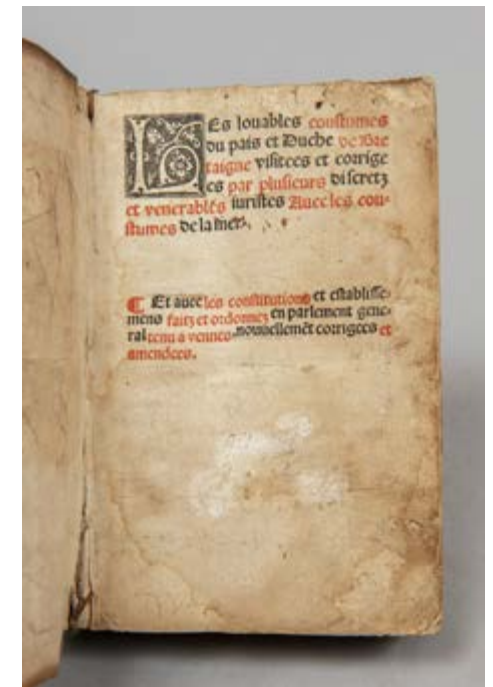 Les louables coustumes
du pais et Duche de Bre
taigne visitees et corrige
es par plusieurs discretz
et venerables iuristes Auec les cou-
stumes de la mer.
¶ Et auec les constitutions et establisse-
mens faitz et ordonnez en parlement gene-
ral tenu a vennes nouuellemēt corrigees et
amendees.